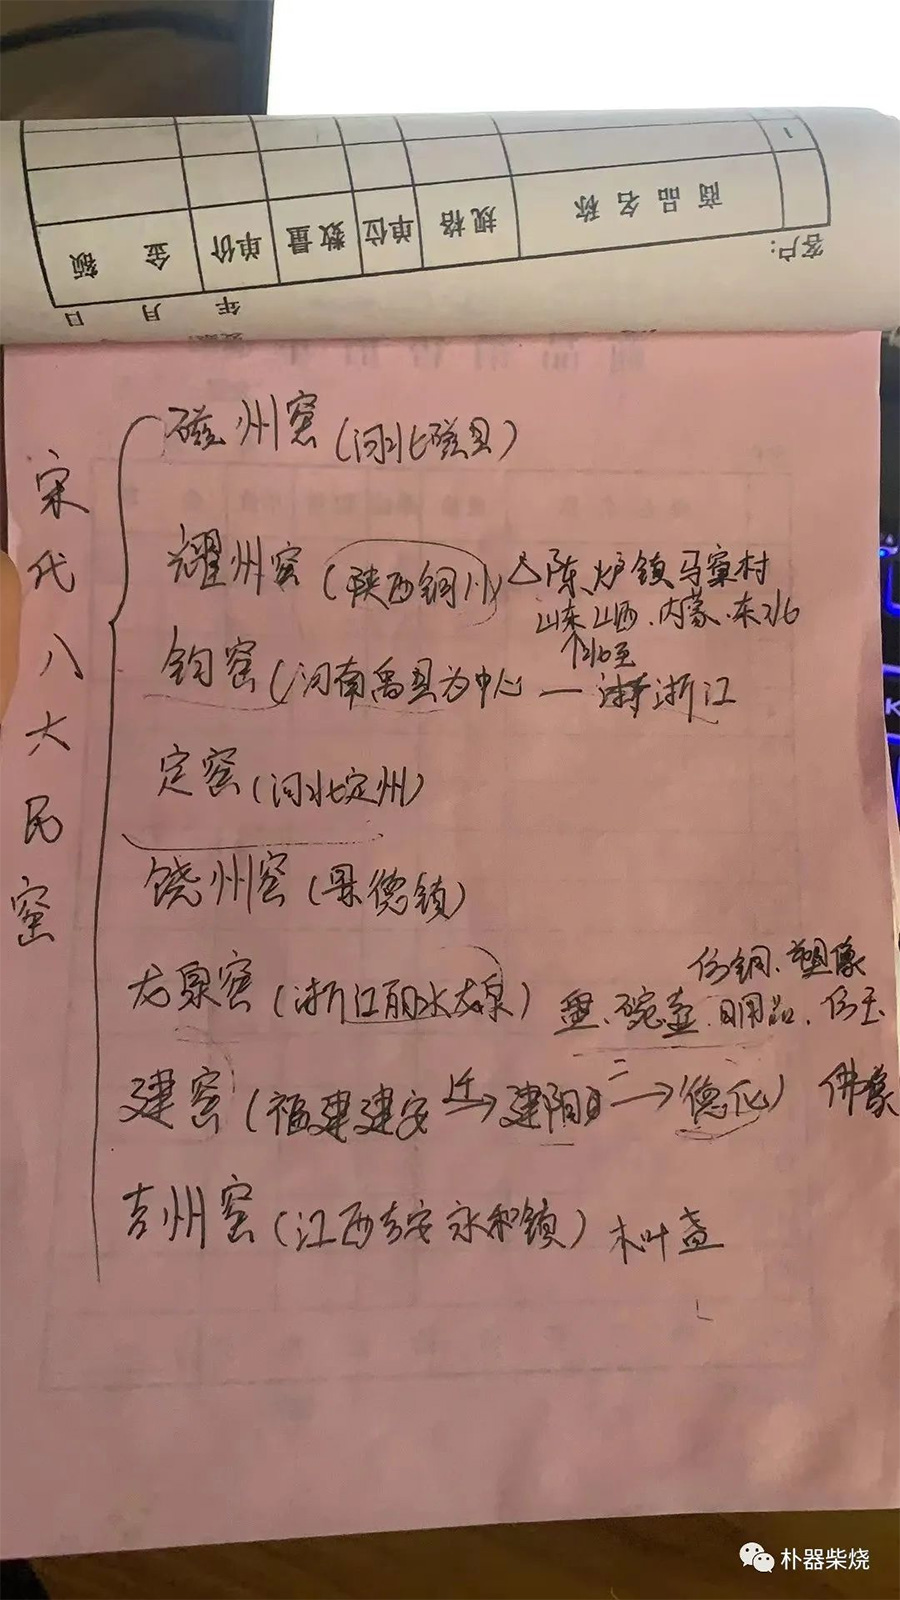 客户:
年 月 日
商品名称 规格 单位 数量 单价 金额
1
宋代八大民窑
磁州窑(河北磁县)
耀州窑(陕西铜川)△陈炉镇马窠村
山东 山西、内蒙、东北
↑北至
钧窑(河南禹县为中心 — 浙江
定窑(河北定州)
饶州窑(景德镇)
仿铜、塑像
龙泉窑(浙江丽水龙泉) 盘、碗壶、日用品、仿玉
建窑(福建建安 迁→ 建阳 二→ 德化) 佛像
吉州窑(江西吉安永和镇) 木叶盏
朴器柴烧